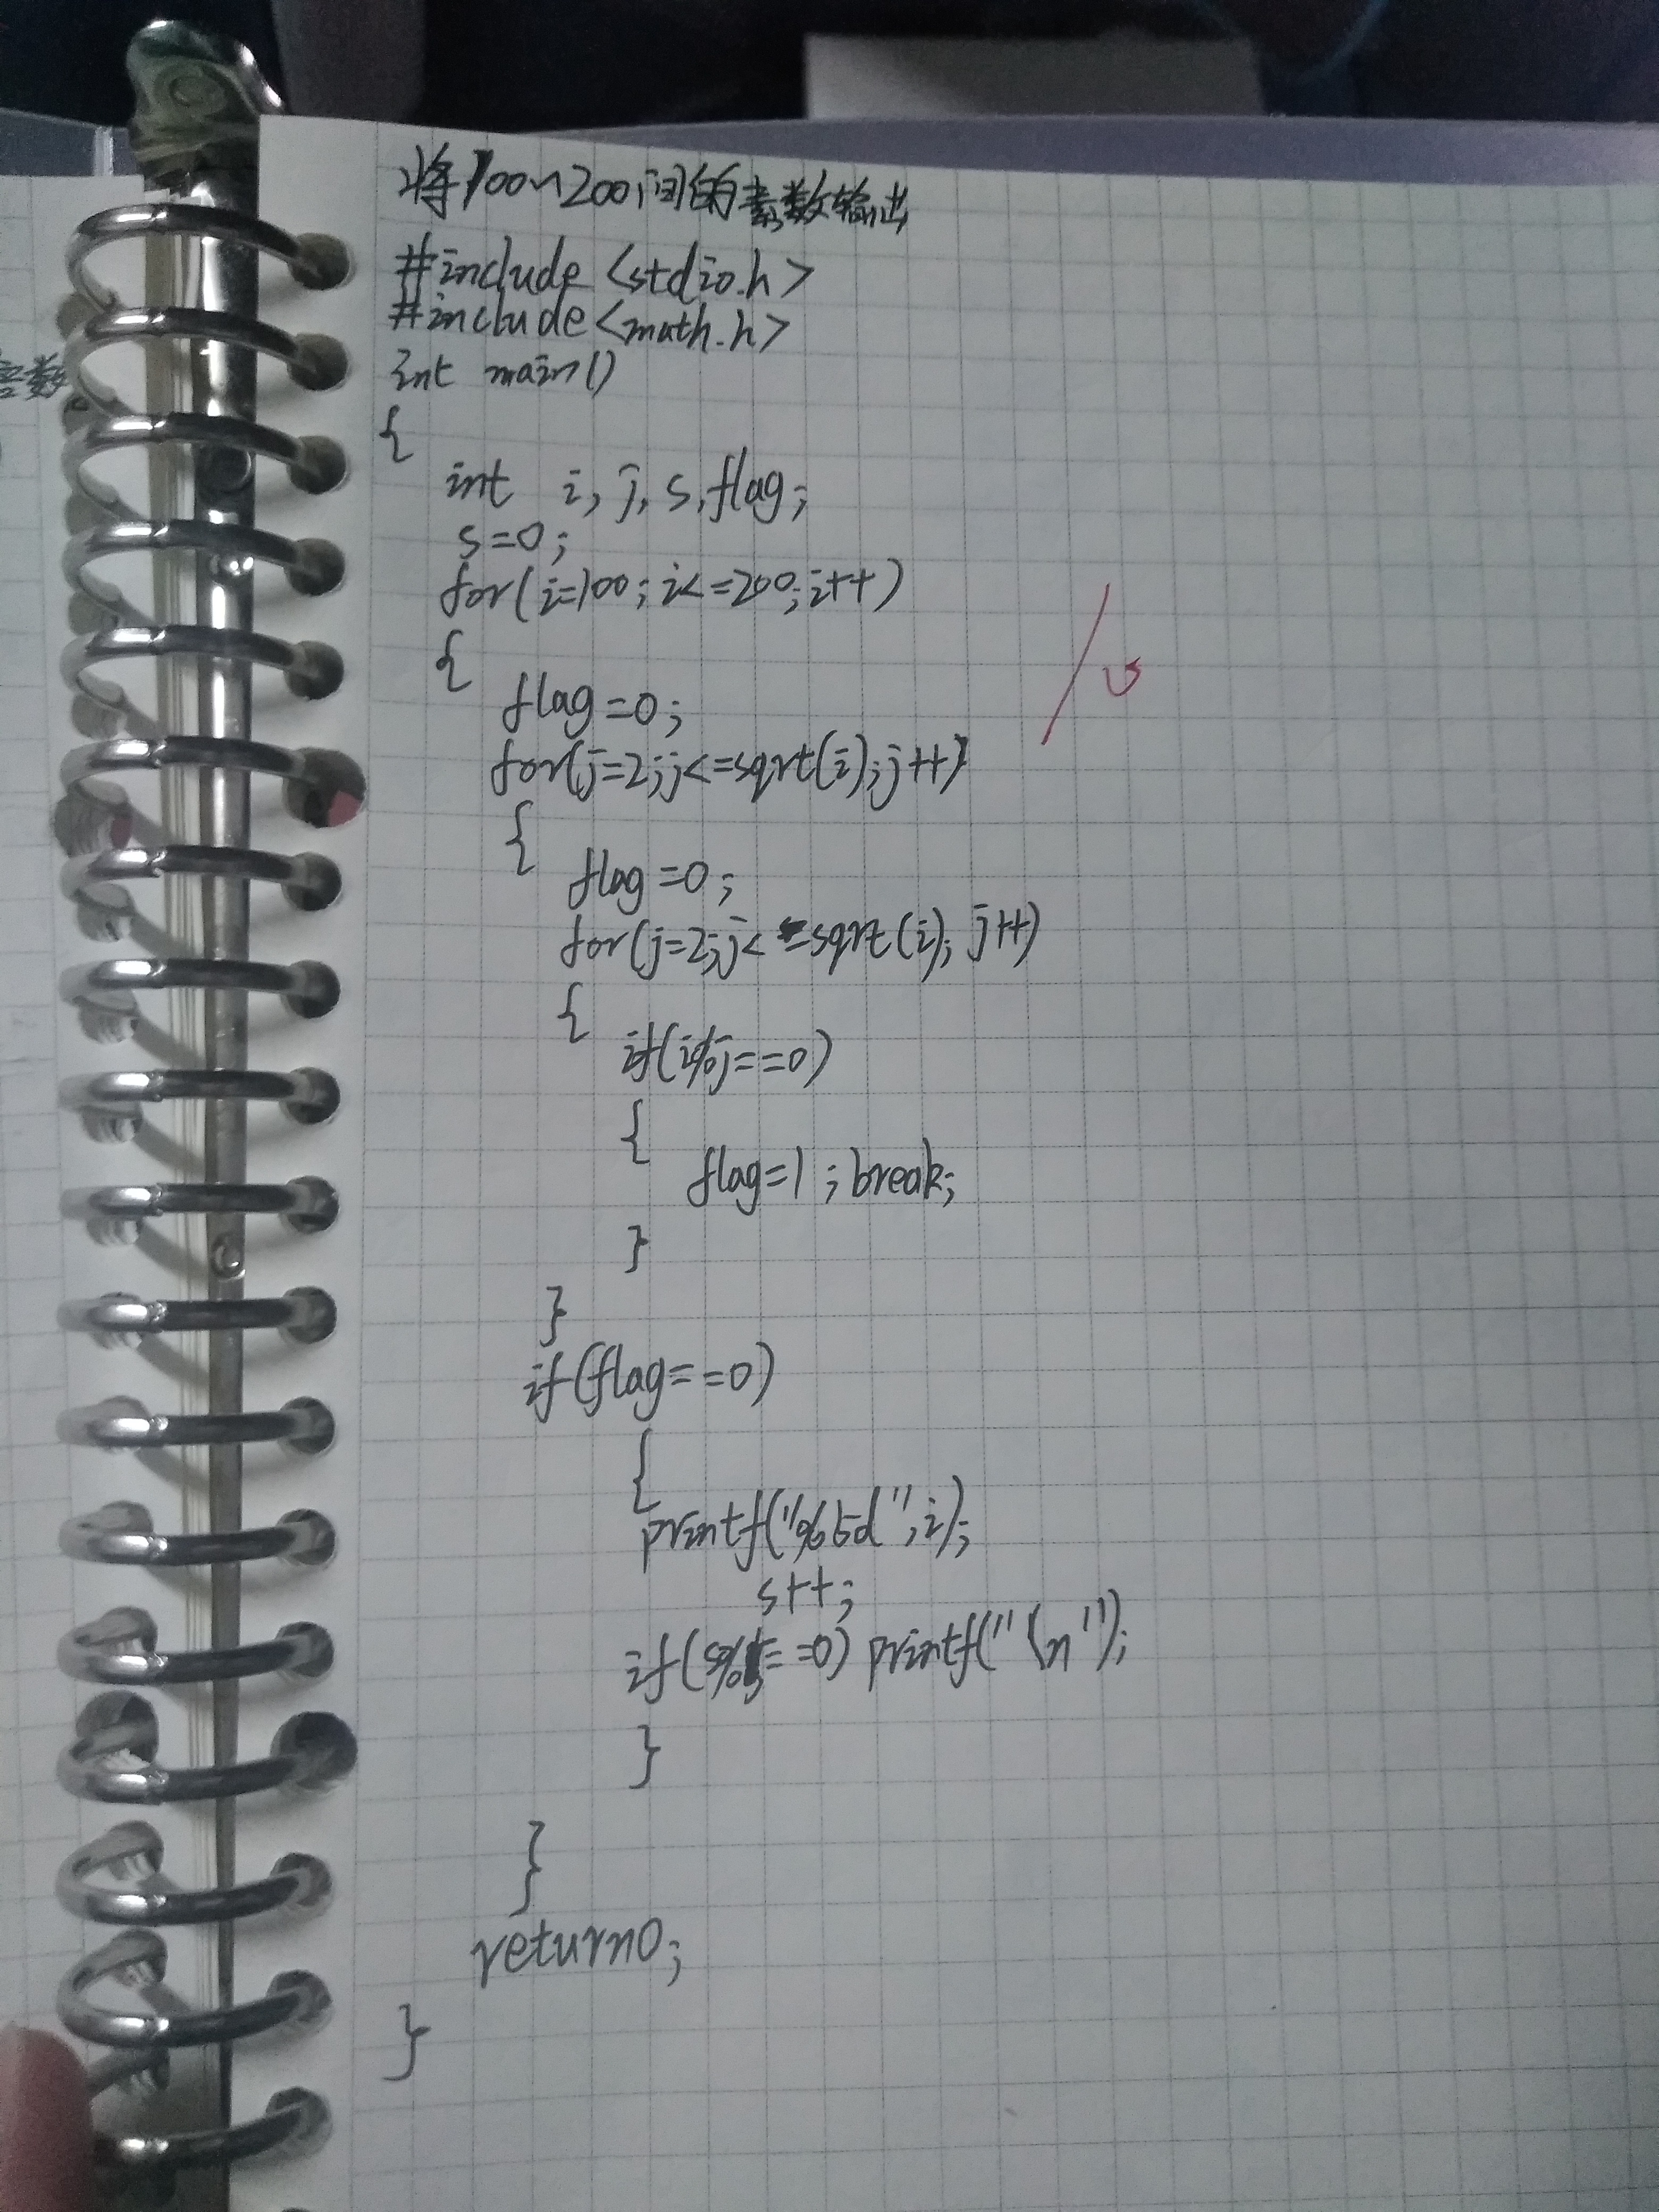 将100~200间的素数输出
#include <stdio.h>
#include<math.h>
int main()
{
int i, j, s, flag;
s=0;
for(i=100; i<=200; i++)
{
flag=0;
for(j=2;j<=sqrt(i);j++)
{
flag=0;
for(j=2;j<=sqrt(i); j++)
{
if(i%j==0)
{
flag=1; break;
}
}
if(flag==0)
{
printf("%5d",i);
s++;
if(s%5==0) printf("\n");
}
}
return0;
}
数